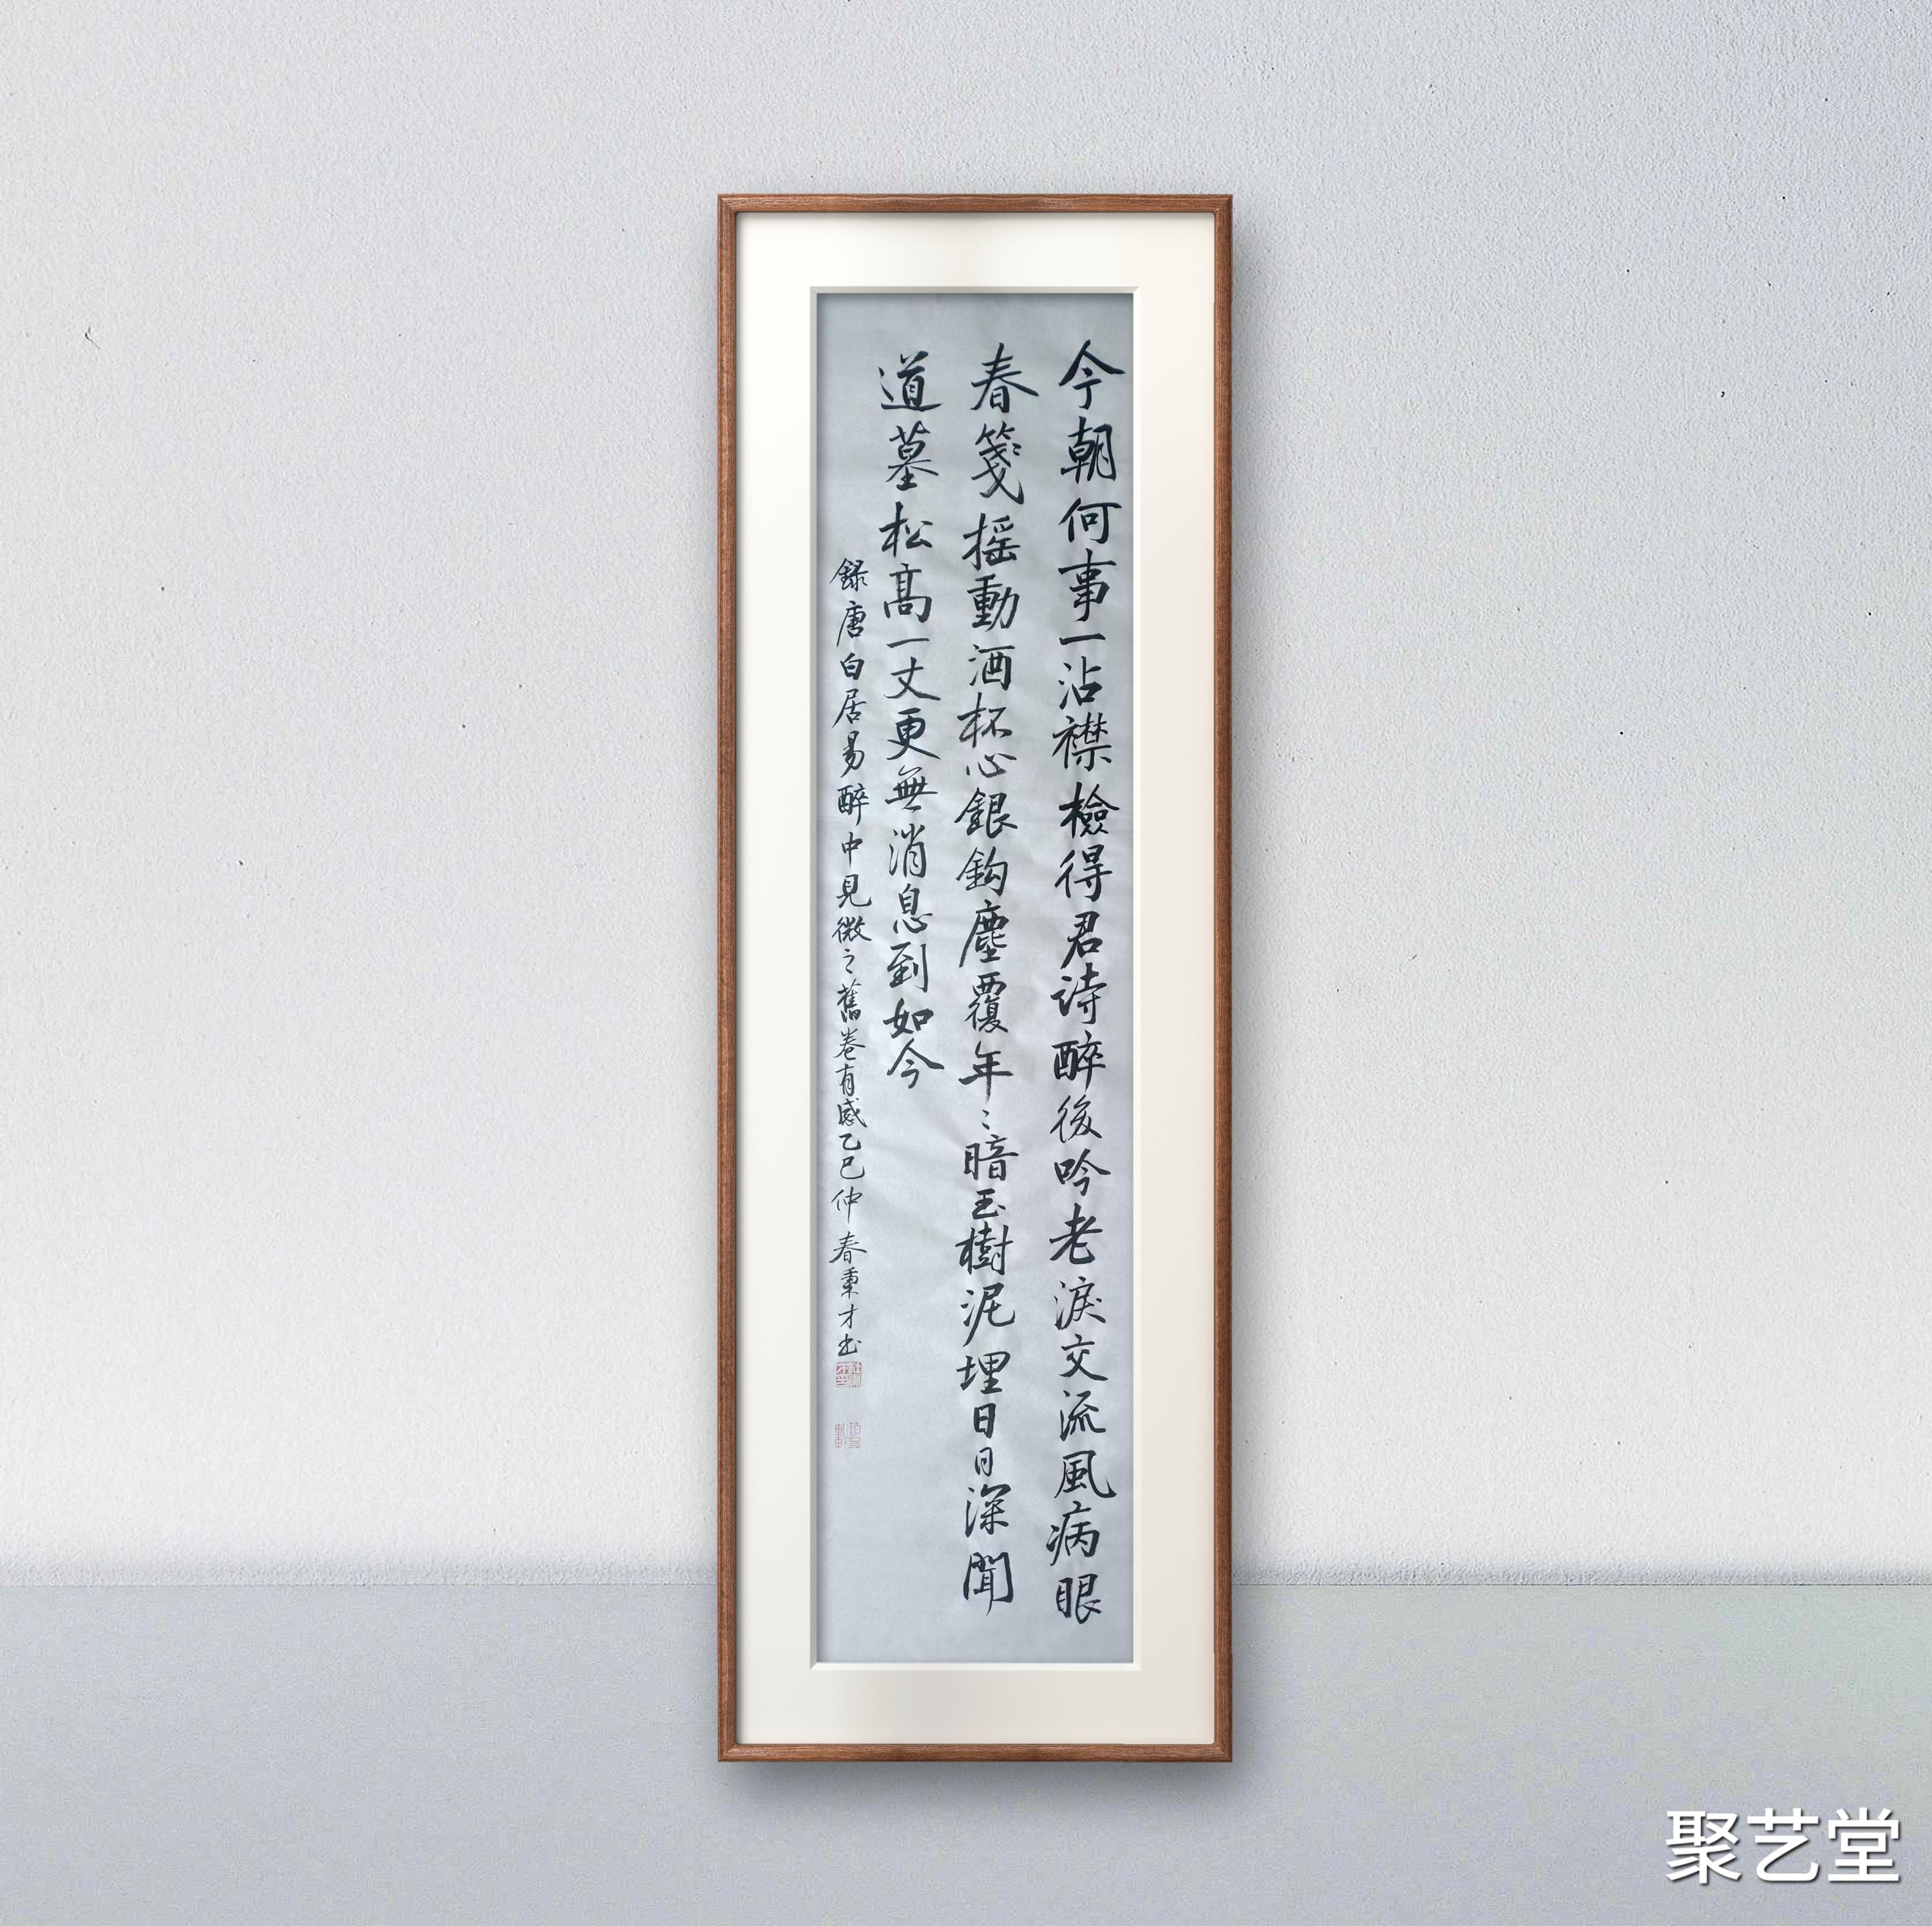 今朝何事一沾襟檢得君詩醉後吟老淚交流風病眼
春箋搖動酒杯心銀鈎塵覆年〻暗玉樹泥埋日日深聞
道墓松高一丈更無消息到如今
錄唐白居易醉中見微之舊卷有感乙巳仲春秉才书
聚艺堂